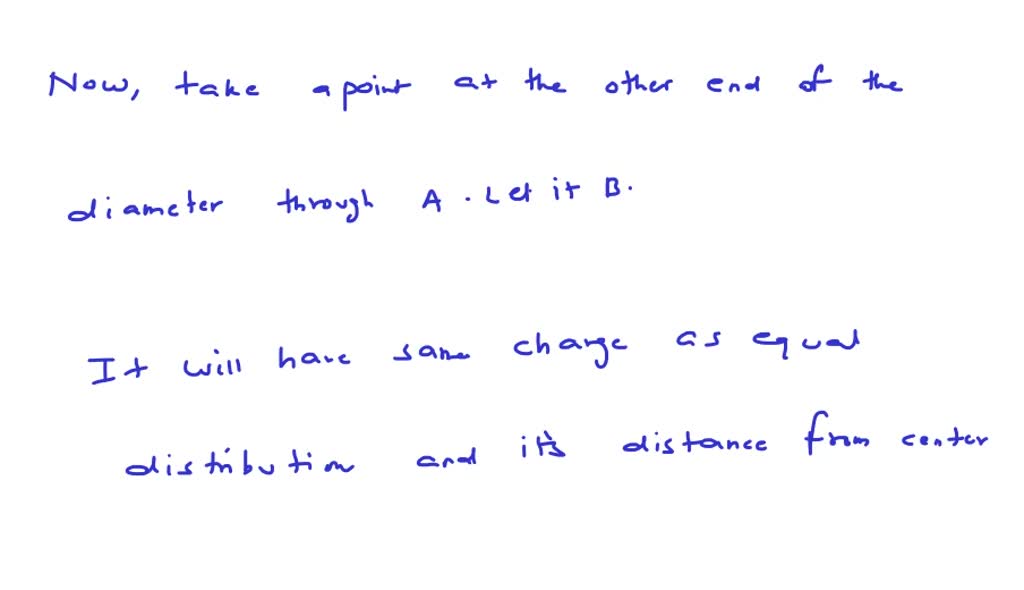 Now, take a point at the other end of the
diameter through A. Let it B.
It will have same charge as equal
distribution and it's distance from center